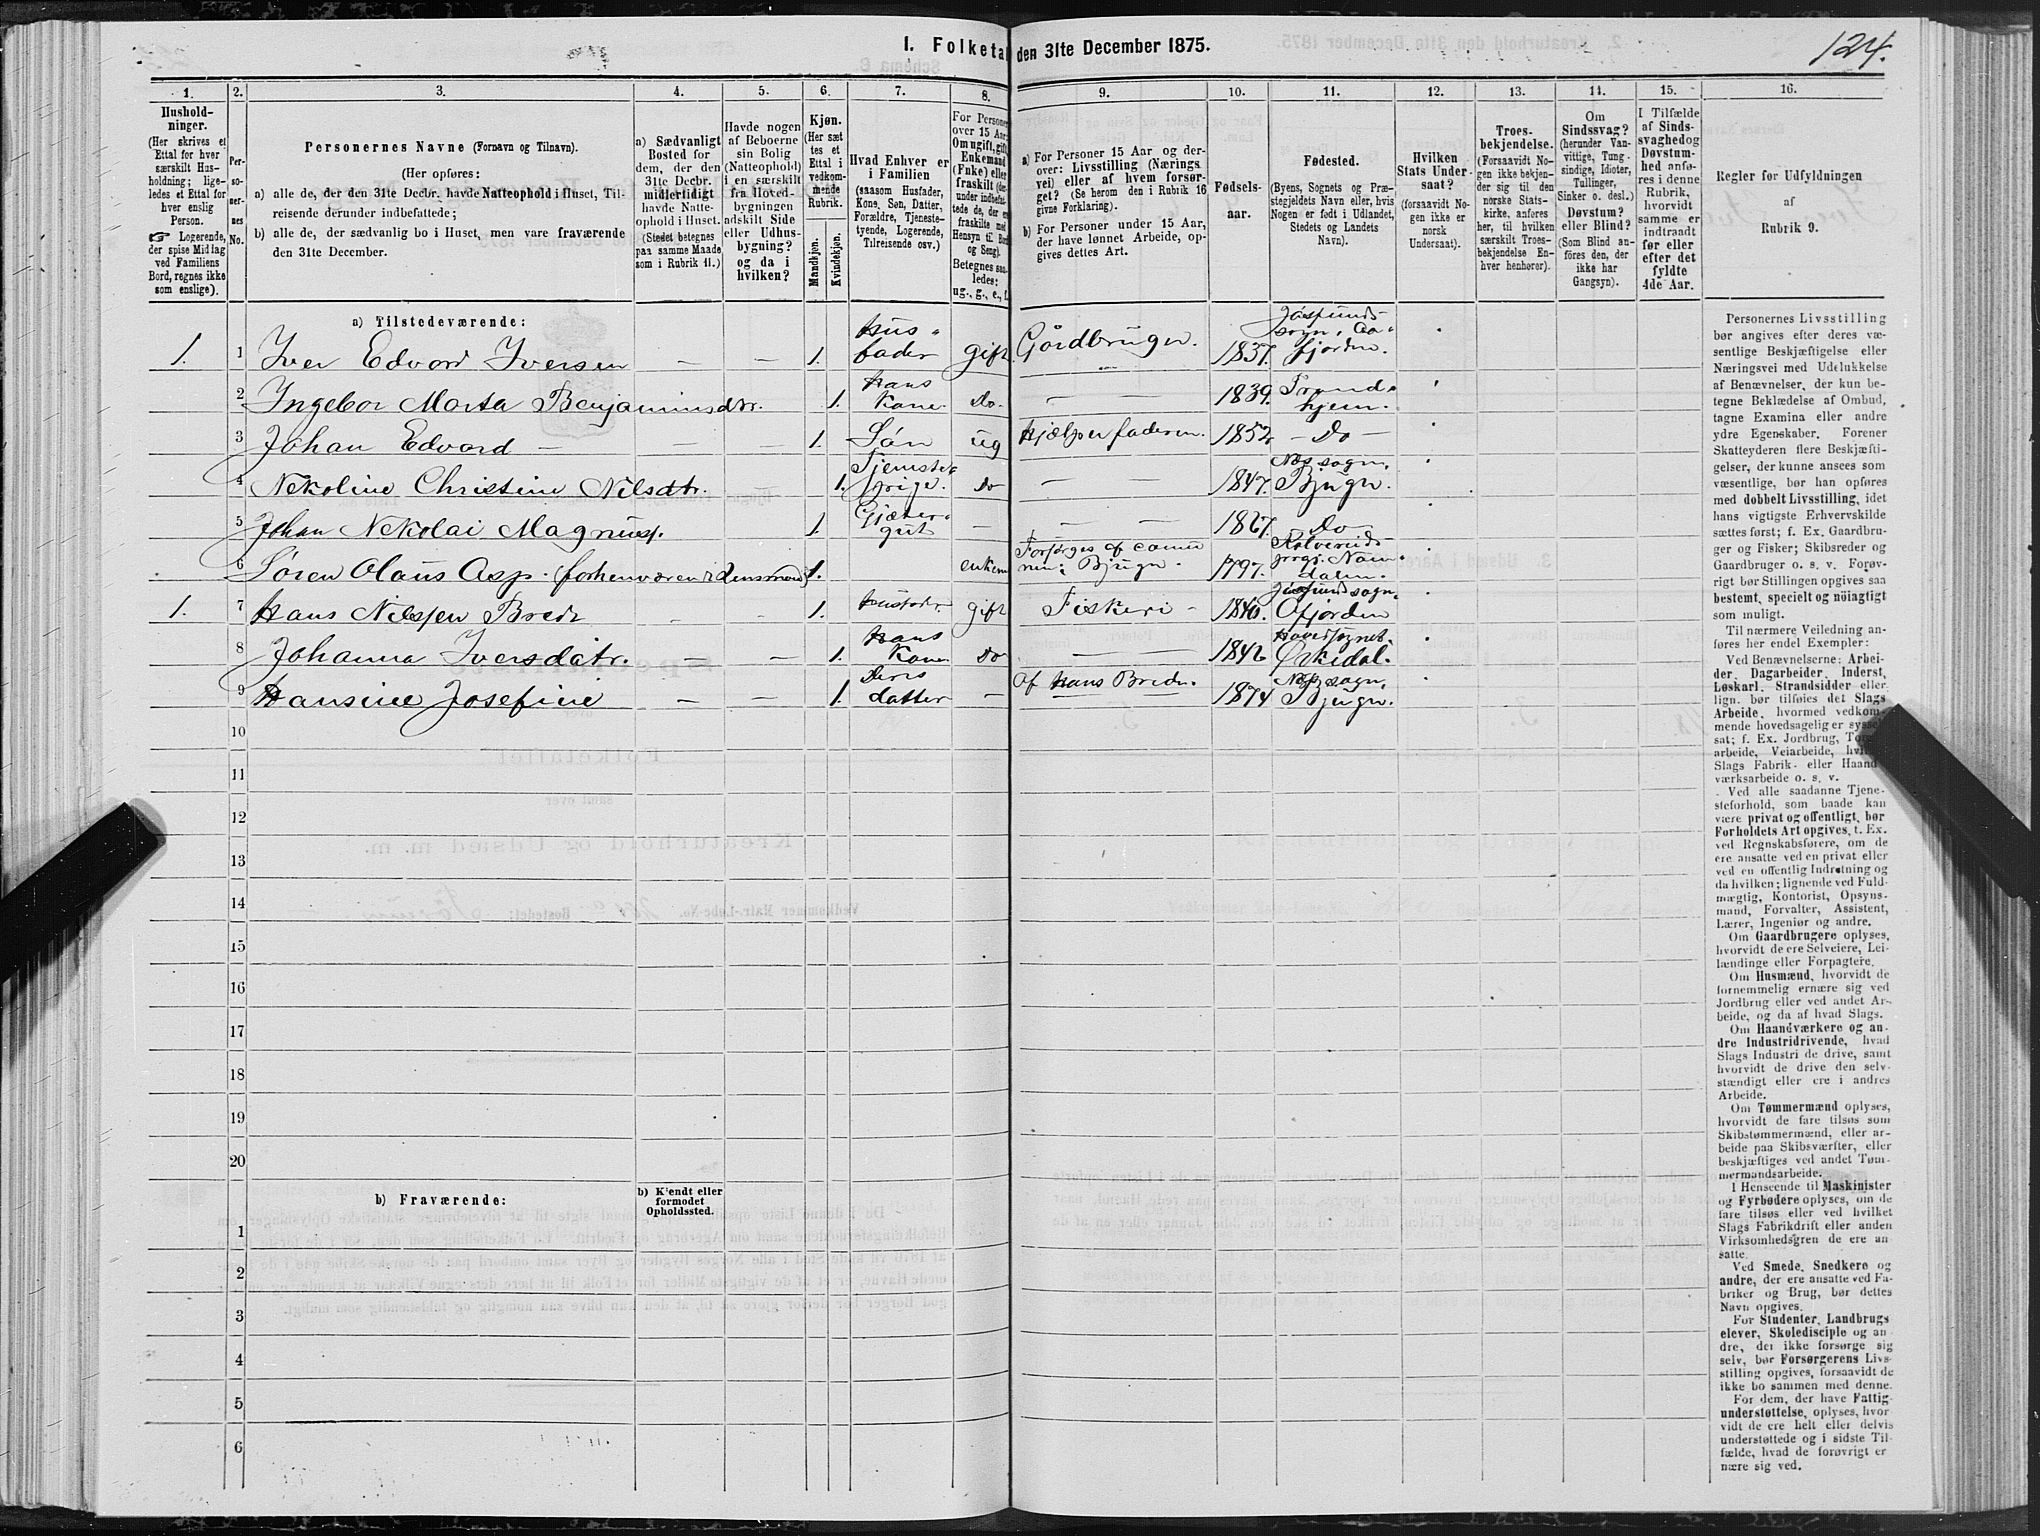 I. Folketal den 31te December 1875.
124.
1. 2. 3. 4. 5. 6. 7. 8. 9. 10. 11. 12. 13. 14. 15. 16.
Hushold-
ninger.
(Her skrives et
Ettal for hver
særskilt Hus-
holdning; lige-
ledes et Ettal for
hver enslig
Person.
☞ Logerende,
der spise Middag
ved Familiens
Bord, regnes ikke
som enslige).
Per-
so-
ner-
nes
No.
Personernes Navne (Fornavn og Tilnavn).
(Her opføres:
a) alle de, der den 31te Decbr. havde Natteophold i Huset, Til-
reisende derunder indbefattede;
b) alle de, der sædvanlig bo i Huset, men vare fraværende
den 31te December.
a) Sædvanligt
Bosted for
dem, der den
31te Decbr.
midlertidigt
havde Natte-
ophold i Huset.
(Stedet betegnes
paa samme Maade
som i Rubrik 11.)
Havde nogen
af Beboerne
sin Bolig
(Natteophold)
i en særskilt
fra Hoved-
bygningen
adskilt Side
eller Udhus-
bygning?
og da i
hvilken?
Kjøn.
(Her sæt-
tes et
Ettal i
vedkom-
mende
Rubrik.
Mandkjøn.
Kvindekjøn.
Hvad Enhver er
i Familien
(saasom Husfader,
Kone, Søn, Datter,
Forældre, Tjeneste-
tyende, Logerende,
Tilreisende osv.)
For Personer
over 15 Aar:
Om ugift, gift,
Enkemand
(Enke) eller
fraskilt
Betegnes saa-
ledes:
ug., g., e., f.
a) For Personer 15 Aar og der-
over: Livsstilling (Nærings-
vei) eller af hvem forsør-
get? (Se herom den i Rubrik 16
givne Forklaring).
b) For Personer under 15 Aar,
der have lønnet Arbeide, op-
gives dettes Art.
Fødsels-
aar.
Fødested.
(Byens, Sognets og Præ-
stegjeldets Navn eller, hvis
Nogen er født i Udlandet,
Stedets og Landets
Navn).
Hvilken
Stats Under-
saat?
(forsaavidt No-
gen ikke er
norsk
Undersaat).
Troes-
bekjendelse.
(Forsaavidt No-
gen ikke bekjen-
der sig til den
norske Stats-
kirke, anføres
her, til hvilken
særskilt Troes-
bekjendelse En-
hver henhører).
Om
Sindssvag?
(herunder Van-
vittige, Tung-
sindige, Idioter,
Tullinger,
Sinker o. desl.)
Døvstum?
eller Blind?
(Som Blind an-
føres den, der
ikke har
Gangsyn).
I Tilfælde
af Sinds-
svaghed og
Døvstum-
hed anfø-
res i denne
Rubrik,
hvorvidt
samme er
indtraadt
før eller
efter det
fyldte
4de Aar.
Regler for Udfyldningen
af
Rubrik 9.
a) Tilstedeværende:
1. 1 Iver Edvard Iversen — — 1. Husfader gift Gårdbruger. 1837. Jøssunds sogn, Aafjorden.
2 Ingebor Marta Benjaminsdtr. 1. Hans Kone. Do. — — 1839. Trondhjem.
3 Johan Edvard — — — 1. Søn ug Hjælper faderen. 1852 — Do —
4 Nekoline Christine Nilsdtr. 1. Tjenestepige. Do — 1847. Næs sogn, Bjugn.
5 Johan Nekolai Magnusp. 1. Gjætergut — — — 1867. Do
6 Søren Olaus Asp. (forhenværende Lensmand) 1. enkem Forsørges af comunen i Bjugn. 1797. Kolvereids prgj. Namdalen.
1. 7 Hans Nilssen Bredr — — 1. husfader gift Fiskeri — 1840. Jøssund sogn, Afjorden
8 Johanna Iversdatr. — — 1. Hans Kone. Do — — 1842 Hovedsognet. Ørkedal.
9 Hansine Josefine — — 1. Deres datter — Af Hans Bredr. 1874 Næs sogn, Bjugn.
10
11
12
13
14
15
16
17
18
19
20
b) Fraværende:
b) Kjendt eller
formodet
Opholdssted.
1
2
3
4
5
6
Personernes Livsstilling
bør angives efter deres væ-
sentlige Beskjæftigelse eller
Næringsvei med Udelukkelse
af Benævnelser, der kun be-
tegne Beklædelse af Ombud,
tagne Examina eller andre
ydre Egenskaber. Forener
Skatteyderen flere Beskjæfti-
gelser, der kunne ansees som
væsentlige, bør han opføres
med dobbelt Livsstilling, idet
hans vigtigste Erhvervskilde
sættes først; f. Ex. Gaardbru-
ger og Fisker; Skibsreder og
Gaardbruger o. s. v. Forøv-
rigt bør Stillingen opgives saa
bestemt, specielt og nöiagtigt
som muligt.
Til nærmere Veiledning an-
føres her endel Exempler:
Ved Benævnelserne: Arbei-
der, Dagarbeider, Inderst,
Løskarl, Strandsidder eller
lign. bør tilføies det Slags
Arbeide, hvormed vedkom-
mende hovedsagelig er syssel-
sat; f. Ex. Jordbrug, Tomt-
arbeide, Veiarbeide, hvilket
Slags Fabrik- eller Haand-
værksarbeide o. s. v.
Ved alle saadanne Tjene-
steforhold, som baade kan
være privat og offentligt, bør
Forholdets Art opgives, t. Ex.
ved Regnskabsførere, om de
ere ansatte ved en privat eller
ved en offentlig Indretning og
da hvilken; lignende ved Fuld-
mægtig, Kontorist, Opsyns-
mand, Forvalter, Assistent,
Lærer, Ingeniør og andre.
Om Gaardbrugere oplyses,
hvorvidt de ere Selveiere, Lei-
lændinge eller Forpagtere.
Om Husmænd, hvorvidt de
fornemmelig ernære sig ved
Jordbrug eller ved andet Ar-
beide, og da af hvad Slags.
Om Haandværkere og an-
dre Industridrivende, hvad
Slags Industri de drive, samt
hvorvidt de drive den selv-
stændigt eller ere i andres
Arbeide.
Om Tømmermænd oplyses,
hvorvidt de fare tilsøs som
Skibstømmermænd, eller ar-
beide paa Skibsværfter, eller
beskjæftiges ved andet Tøm-
mermandsarbeide.
I Henseende til Maskinister
og Fyrbødere oplyses, om de
fare tilsøs eller ved hvilket
Slags Fabrikdrift eller anden
Virksomhedsgren de ere an-
satte.
Ved Smede, Snedkere og
andre, der ere ansatte ved Fa-
briker og Brug, bør dettes
Navn opgives.
For Studenter, Landbrugs-
elever, Skoledisciple og an-
dre, der ikke forsørge sig
selv, bør Forsørgerens Livs-
stilling opgives, forsaavidt de
ikke bo sammen med denne.
For dem, der have Fattig-
understøttelse, oplyses, hvor-
vidt de ere helt eller delvis
understøttede og i sidste Til-
fælde, hvad de forøvrigt er-
nære sig ved.